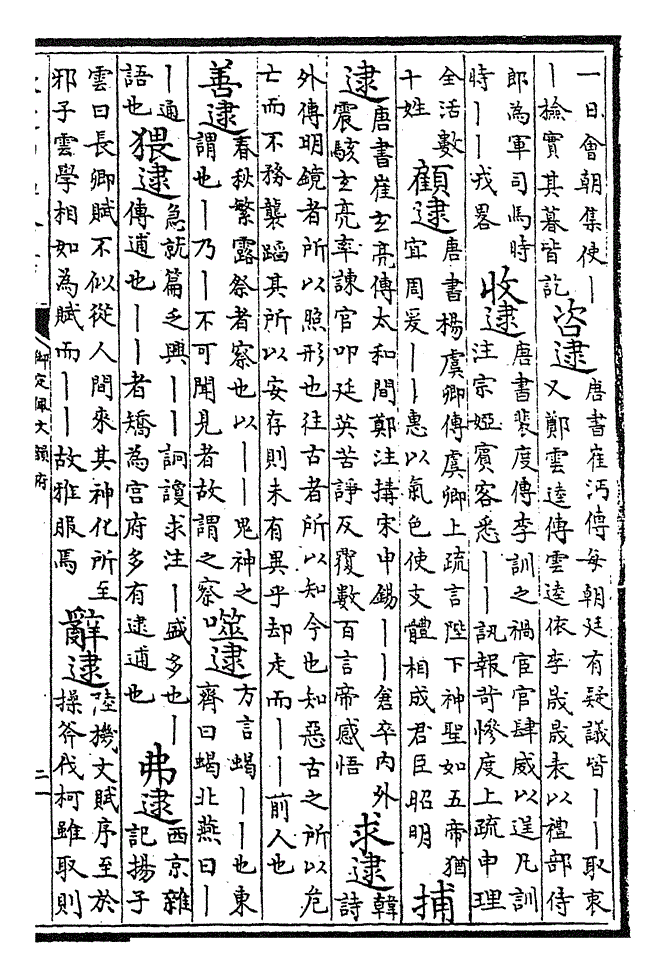 一日會朝集使丨
丨檢實其暮皆訖
咨逮
唐書崔沔傳每朝廷有疑議皆丨丨取衷
又鄭雲逵傳雲逵依李晟晟表以禮部侍
郎為軍司馬時
時丨丨戎畧
收逮
唐書裴度傳李訓之禍宦官肆威以逞凡訓
注宗婭賓客悉丨丨訊報苛慘度上疏申理
全活數
十姓
顧逮
唐書楊虞卿傳虞卿上疏言陛下神聖如五帝猶
宜周爰丨丨惠以氣色使支體相成君臣昭明
捕
逮
唐書崔玄亮傳太和間鄭注搆宋申錫丨丨倉卒內外
震駭玄亮率諫官叩延英苦諍反覆數百言帝感悟
求逮
韓
詩
外傳明鏡者所以照形也往古者所以知今也知惡古之所以危
亡而不務襲蹈其所以安存則未有異乎却走而丨丨前人也
善逮
春秋繁露祭者察也以丨丨鬼神之
謂也丨乃丨不可聞見者故謂之察
噬逮
方言蝎丨丨也東
齊曰蝎北燕曰丨
丨通
語也
猥逮
急就篇乏興丨丨詗讂求注丨盛多也丨
傳逋也丨丨者矯為官府多有逮逋也
弗逮
西京雜
記揚子
雲曰長卿賦不似從人間來其神化所至
邪子雲學相如為賦而丨丨故雅服焉
辭逮
陸機文賦序至於
操斧伐柯雖取則
御定佩文韻府